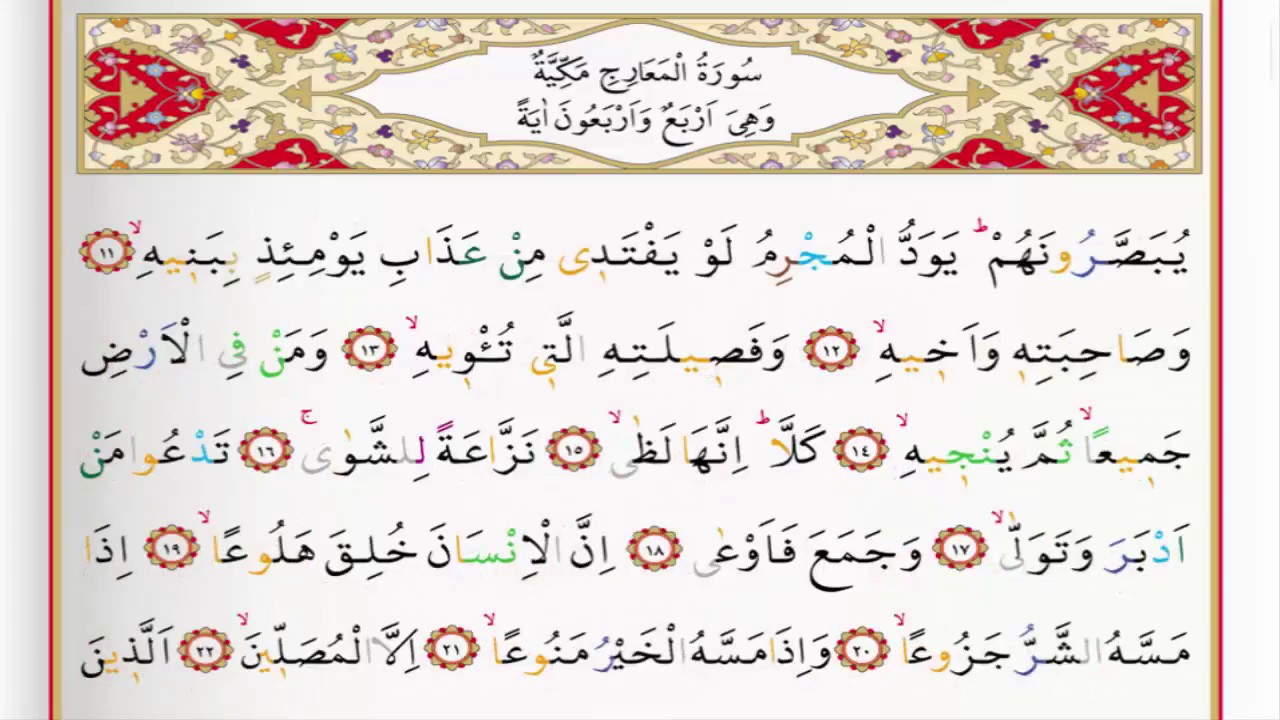 سُورَةُ الْمَعَارِجِ مَكِّيَّةٌ
وَهِىَ اَرْبَعٌ وَاَرْبَعُونَ اٰيَةً
يُبَصَّرُونَهُمْۜ يَوَدُّ الْمُجْرِمُ لَوْ يَفْتَدٖى مِنْ عَذَابِ يَوْمِئِذٍ بِبَنٖيهِۙ ١١
وَصَاحِبَتِهٖ وَاَخٖيهِۙ ١٢ وَفَصٖيلَتِهِ الَّتٖى تُـْٔوٖيهِۙ ١٣ وَمَنْ فِى الْاَرْضِ
جَمٖيعاًۙ ثُمَّ يُنْجٖيهِۙ ١٤ كَلَّاۜ اِنَّهَا لَظٰىۙ ١٥ نَزَّاعَةً لِلشَّوٰىۚ ١٦ تَدْعُوا مَنْ
اَدْبَرَ وَتَوَلّٰىۙ ١٧ وَجَمَعَ فَاَوْعٰى ١٨ اِنَّ الْاِنْسَانَ خُلِقَ هَلُوعًاۙ ١٩ اِذَا
مَسَّهُ الشَّرُّ جَزُوعًاۙ ٢٠ وَاِذَا مَسَّهُ الْخَيْرُ مَنُوعًاۙ ٢١ اِلَّا الْمُصَلّٖينَۙ ٢٢ اَلَّذٖينَ